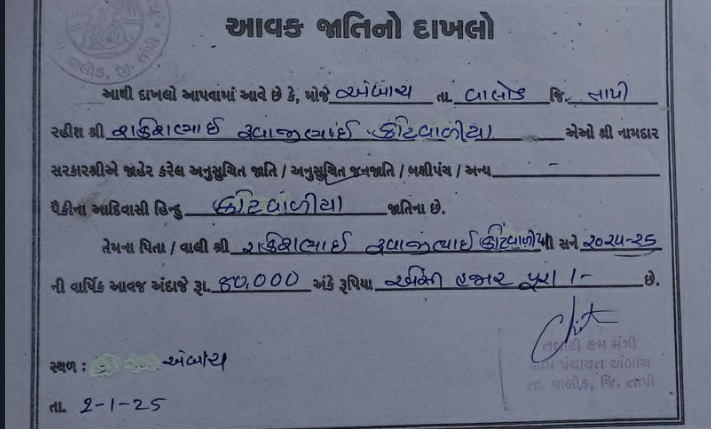 વાલોડ, જી. તાપી
આવક જાતિનો દાખલો
આથી દાખલો આપવામાં આવે છે કે, મોજે અંબાચ તા. વાલોડ જિ. તાપી
રહીશ શ્રી રાકેશભાઈ રવાજીભાઈ કોટવાળીયા એઓ શ્રી નામદાર
સરકારશ્રીએ જાહેર કરેલ અનુસુચિત જાતિ / અનુસુચિત જનજાતિ / બક્ષીપંચ / અન્ય -
પૈકીના આદિવાસી હિન્દુ કોટવાળીયા જાતિના છે.
તેમના પિતા / વાલી શ્રી રાકેશભાઈ રવાજીભાઈ કોટવાળીયા ની સને ૨૦૨૫-૨૬
ની વાર્ષિક આવજ અંદાજે રૂા. ૮૦,૦૦૦ અંકે રૂપિયા એંસી હજાર પૂરા /- છે.
તલાટી કમ મંત્રી
ગ્રામ પંચાયત અંબાચ
સ્થળ : અંબાચ
તા. વાલોડ, જિ. તાપી
તા. ૨-૧-૨૫